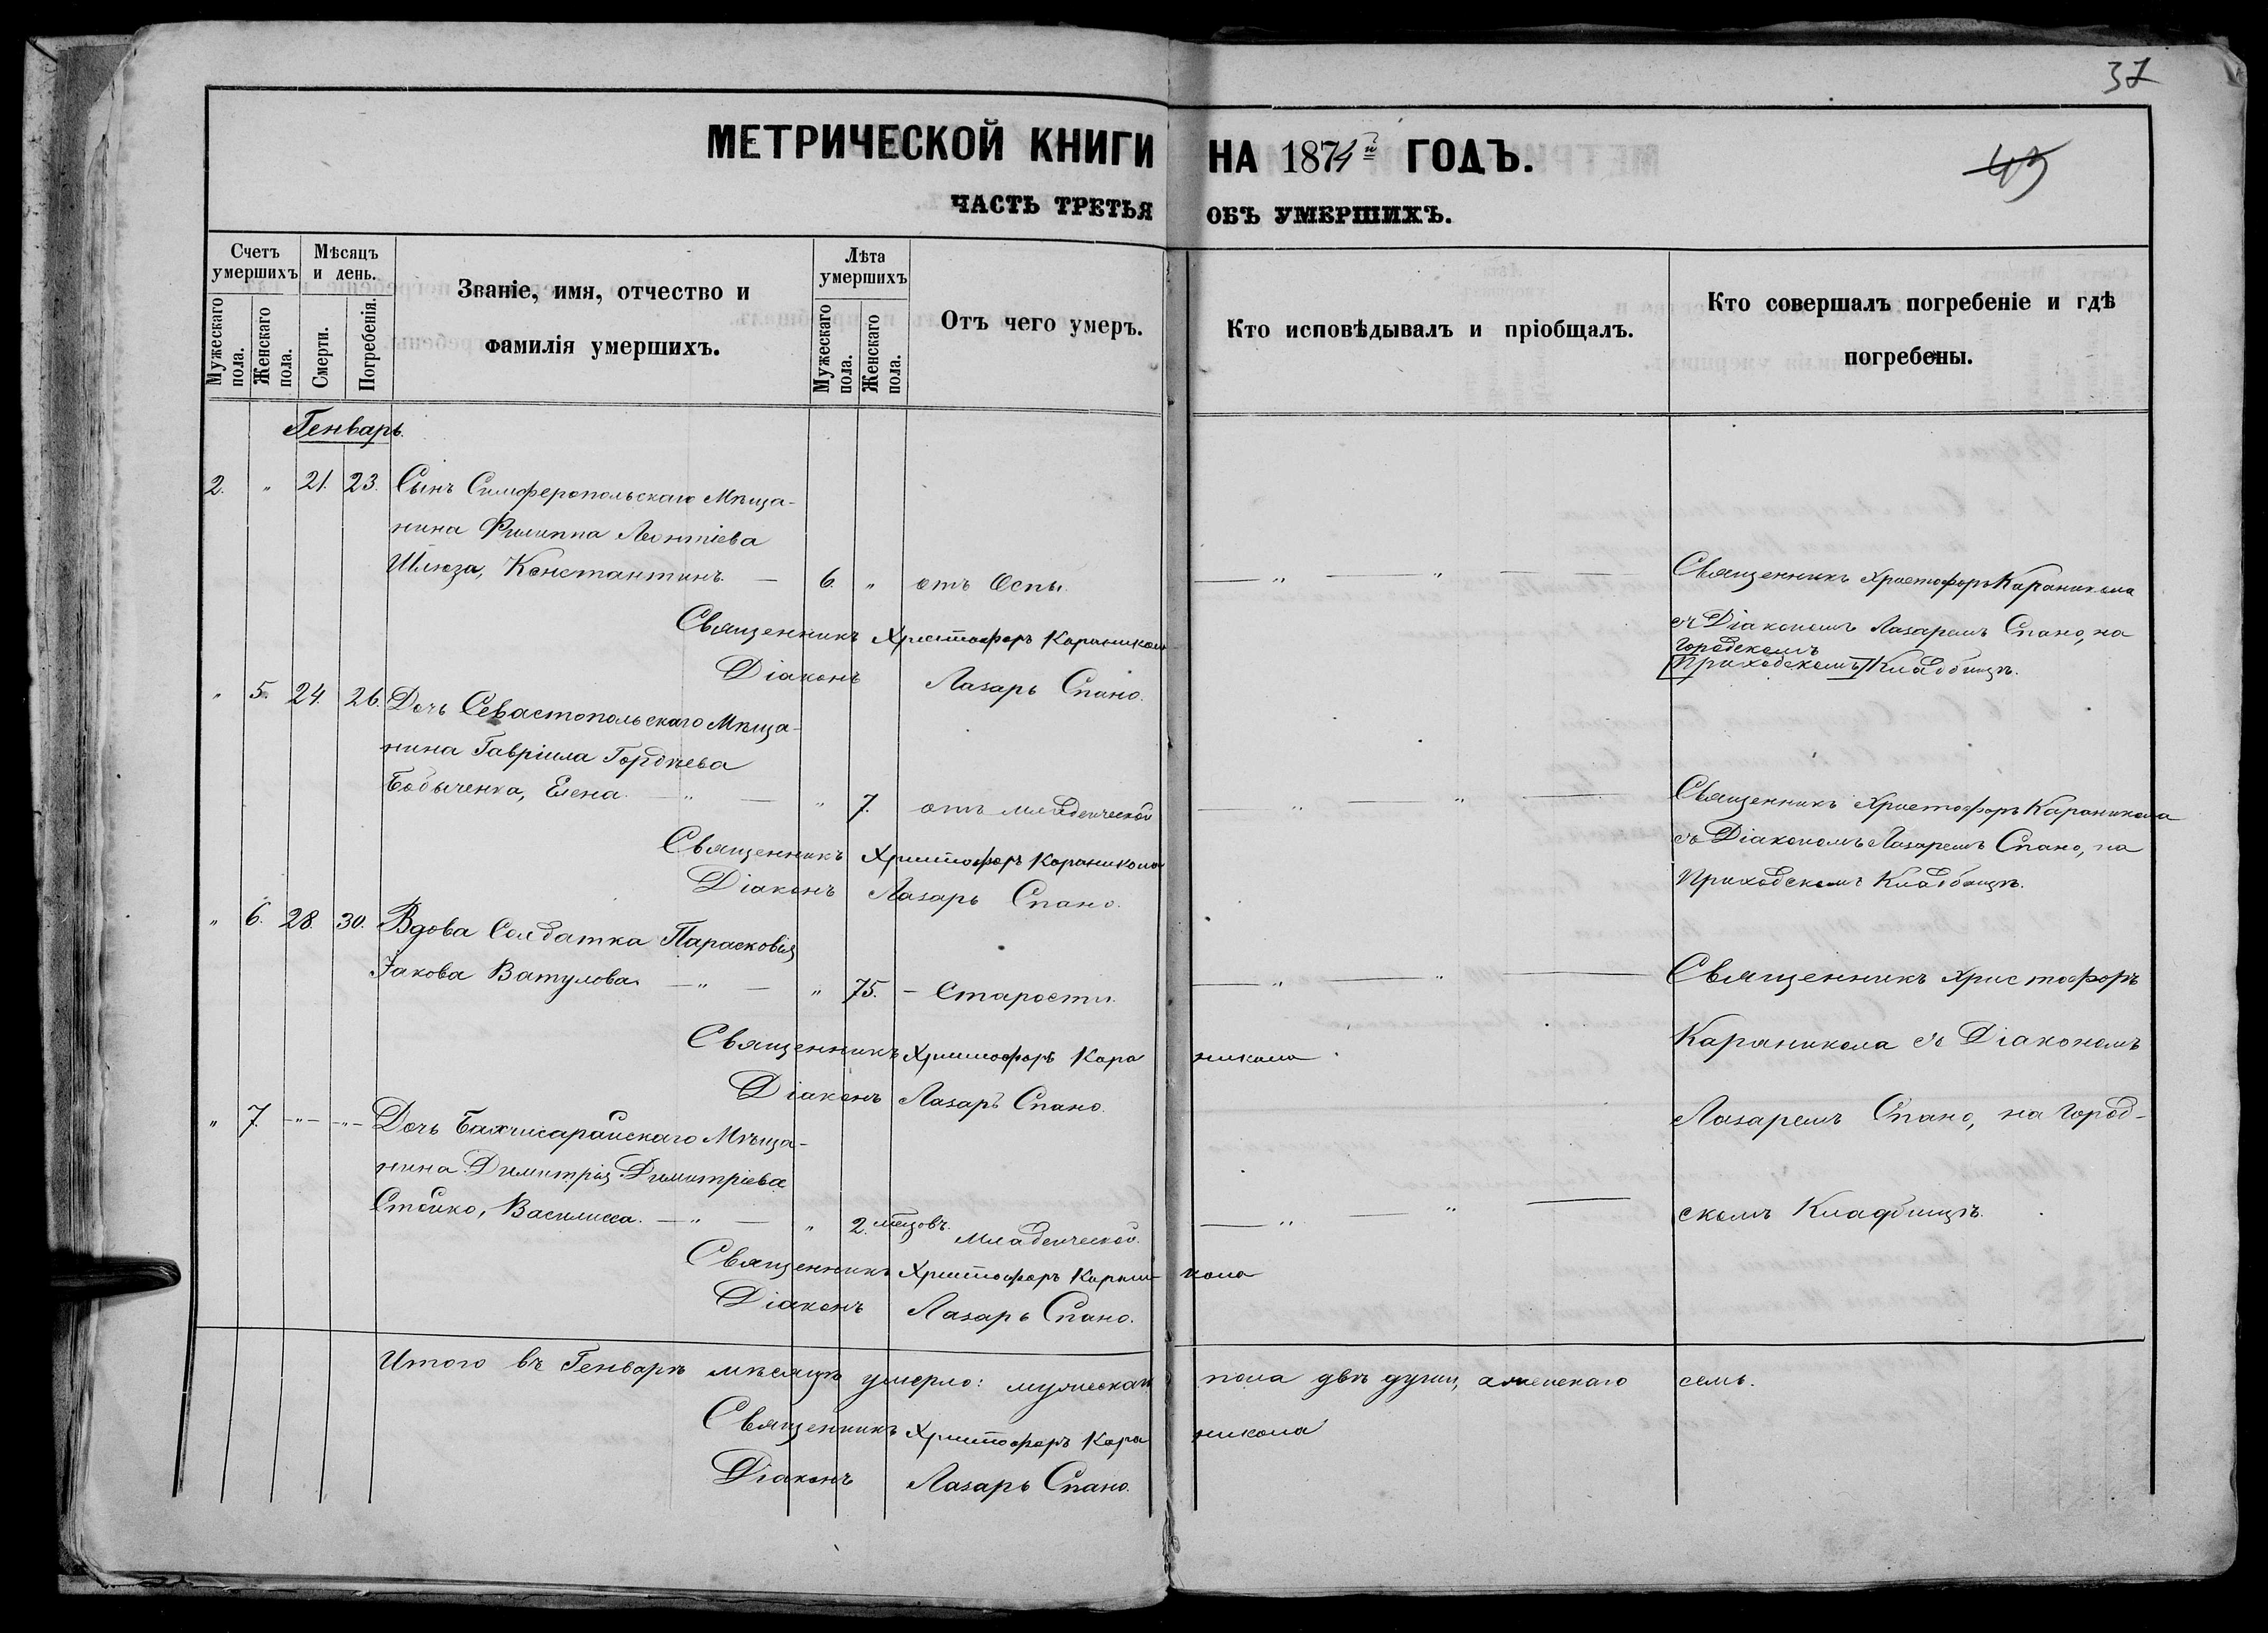 37
МЕТРИЧЕСКОЙ КНИГИ НА 1874й ГОДЪ.
43
ЧАСТЬ ТРЕТЬЯ ОБЪ УМЕРШИХЪ.
Счетъ умершихъ
Мужескаго пола.
Женскаго пола.
Мѣсяцъ и день.
Смерти.
Погребенія.
Званіе, имя, отчество и
фамилія умершихъ.
Лѣта умершихъ
Мужескаго пола.
Женскаго пола.
Отъ чего умеръ.
Кто исповѣдывалъ и пріобщалъ.
Кто совершалъ погребеніе и гдѣ
погребены.
Генварь.
2. " 21. 23. Сынъ Симферопольскаго Мѣща-
нина Филиппа Леонтіева
Шлюза, Константинъ. — 6. " отъ Оспы. — " — " — —
Священникъ Христофоръ Караникола
съ Діакономъ Лазаремъ Спано, на
Городскомъ
Приходскомъ Кладбищѣ.
Священникъ Христофоръ Караникола
Діаконъ Лазарь Спано.
" 5. 24. 26. Дочь Севастопольскаго Мѣща-
нина Гавріила Гордѣева
Бобыченка, Елена. — " — " 7. отъ младенческой — " — " —
Священникъ Христофоръ Караникола
съ Діакономъ Лазаремъ Спано, на
Приходскомъ Кладбищѣ.
Священникъ Христофоръ Караникола
Діаконъ Лазарь Спано.
" 6. 28. 30. Вдова Солдатка Парасковія
Іакова Ватулова. — " — " 75. - Старости. — " — " —
Священникъ Христофоръ
Караникола съ Діакономъ
Лазаремъ Спано, на Город-
скомъ Кладбищѣ.
Священникъ Христофоръ Караникола
Діаконъ Лазарь Спано.
" 7. -"- -"- Дочь Бахчисарайскаго Мѣща-
нина Димитрія Димитріева
Стойко, Василисса. — " — " 2. мѣсяцовъ. Младенческой. — " — " —
Священникъ Христофоръ Караникола
Діаконъ Лазарь Спано.
Итого въ Генварѣ мѣсяцѣ умерло: мужескаго пола двѣ души, а женскаго семь.
Священникъ Христофоръ Караникола
Діаконъ Лазарь Спано.